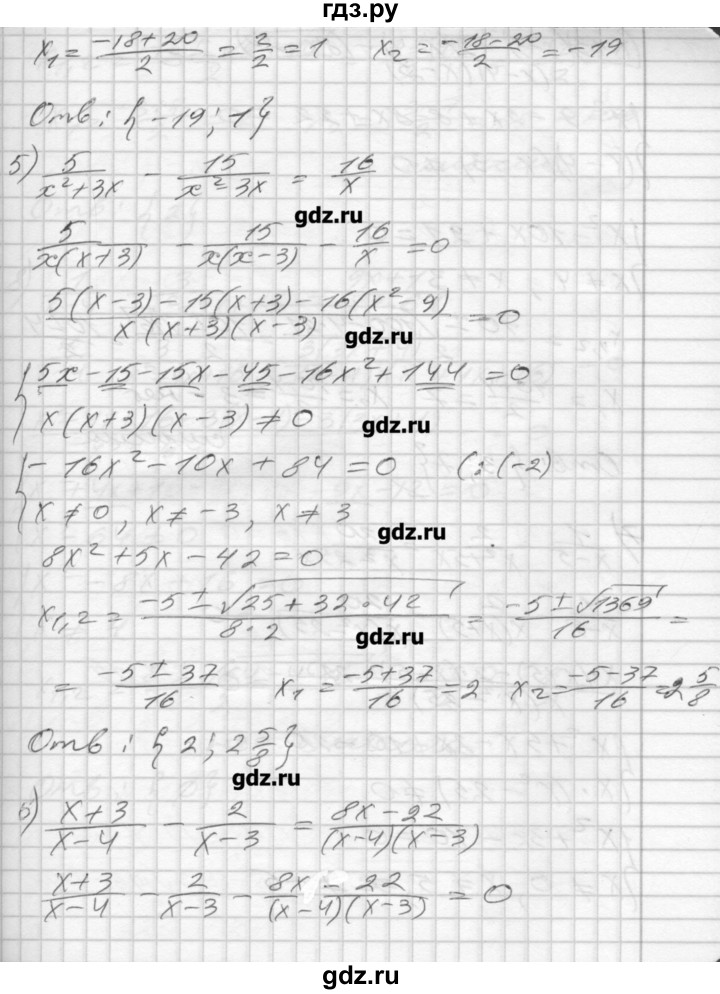 гдз.ру
x₁ = (-18+20)/2 = 2/2 = 1 x₂ = (-18-20)/2 = -19
Отв: {-19; 1}
5) 5/(x²+3x) - 15/(x²-3x) = 16/x
gdz.ru
5/(x(x+3)) - 15/(x(x-3)) - 16/x = 0
(5(x-3) - 15(x+3) - 16(x²-9))/(x(x+3)(x-3)) = 0
gdz.ru
{ 5x - 15 - 15x - 45 - 16x² + 144 = 0
x(x+3)(x-3) ≠ 0
gdz.ru
{ - 16x² - 10x + 84 = 0 (: (-2)
x ≠ 0, x ≠ -3, x ≠ 3
gdz.ru
8x² + 5x - 42 = 0
x₁,₂ = (-5 ± √(25 + 32 · 42))/(8·2) = (-5 ± √1369)/16 =
gdz.ru
= (-5 ± 37)/16 x₁ = (-5+37)/16 = 2 x₂ = (-5-37)/16 = 2 5/8
Отв: {2; 2 5/8}
gdz.ru
6) (x+3)/(x-4) - 2/(x-3) = (8x-22)/((x-4)(x-3))
(x+3)/(x-4) - 2/(x-3) - (8x - 22)/((x-4)(x-3)) = 0
gdz.ru